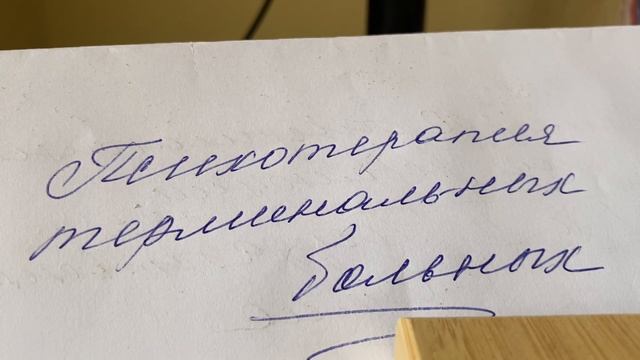 Психотерапия
терминальных
больных